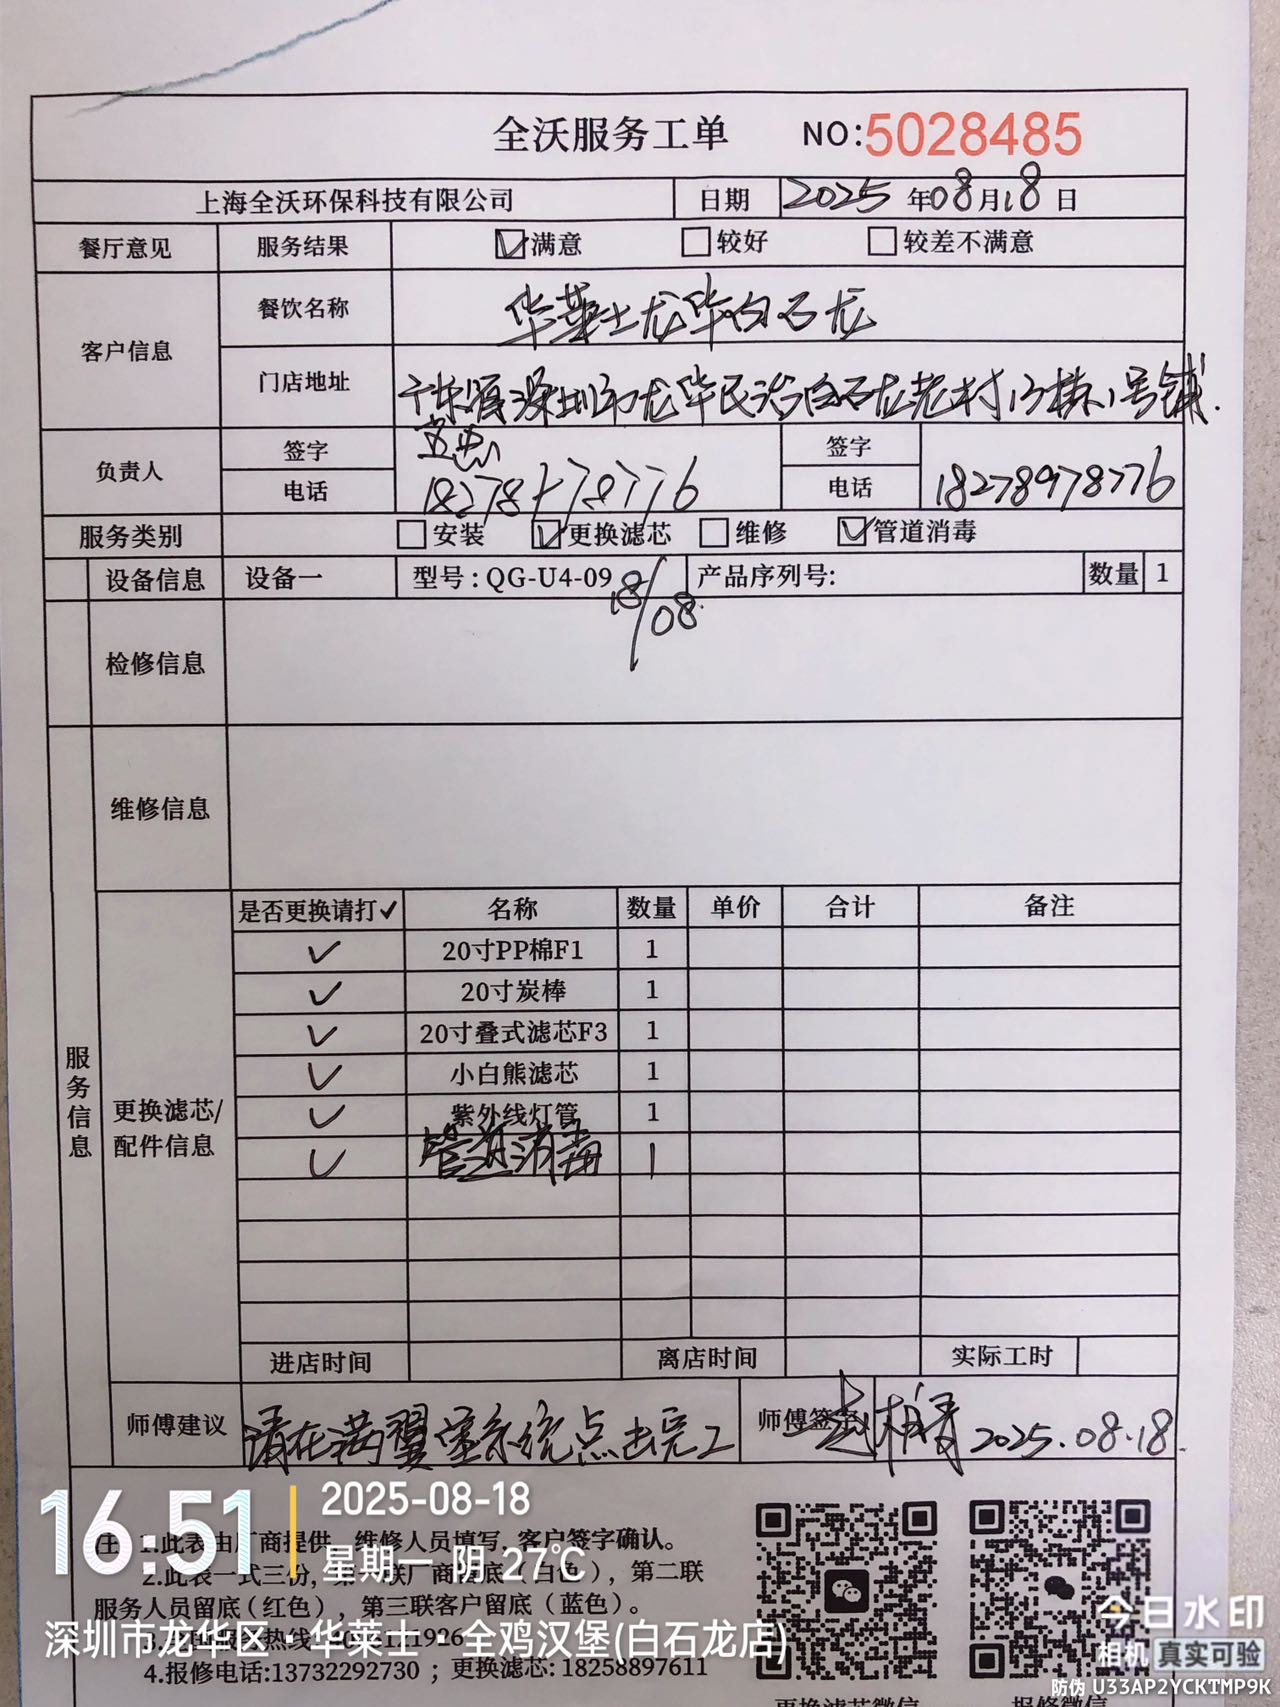 全沃服务工单 NO:5028485
上海全沃环保科技有限公司 日期 2025年08月18日
餐厅意见 服务结果 ☑满意 □较好 □较差不满意
客户信息 餐饮名称 华莱士龙华白石龙
门店地址 广东省深圳市龙华民治白石龙老村13栋1号铺.
负责人 签字 签字
电话 18278978776 电话 18278978776
服务类别 □安装 ☑更换滤芯 □维修 ☑管道消毒
设备信息 设备一 型号:QG-U4-09 产品序列号: 数量 1
18/08.
检修信息
维修信息
服务信息
更换滤芯/配件信息
是否更换请打✓ 名称 数量 单价 合计 备注
✓ 20寸PP棉F1 1
✓ 20寸炭棒 1
✓ 20寸叠式滤芯F3 1
✓ 小白熊滤芯 1
✓ 紫外线灯管 1
✓ 管道消毒 1
进店时间 离店时间 实际工时
师傅建议 请在满翼系统点击完工 师傅签字 2025.08.18.
注 1.此表由厂商提供 维修人员填写,客户签字确认。
2.此表一式三份, 第一联厂商留底(白色),第二联
服务人员留底(红色),第三联客户留底(蓝色)。
4.报修电话:13732292730 ;更换滤芯:18258897611
更换滤芯微信 报修微信
16:51 2025-08-18
星期一 阴 27℃
深圳市龙华区·华莱士·全鸡汉堡(白石龙店)
今日水印
相机 真实可验
防伪 U33AP2YCKTMP9K